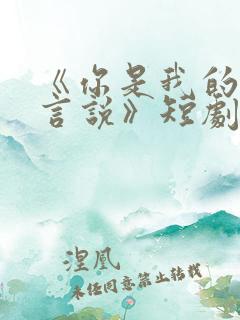 《你是我的
言說》短劇
湼凰
未经同意禁止转载